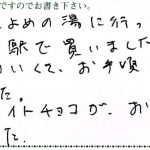 ですのでお書き下さい。
よめの湯に行っ
駅で買いました
いくて、お手頃
た。
イトチョコが、お
た。